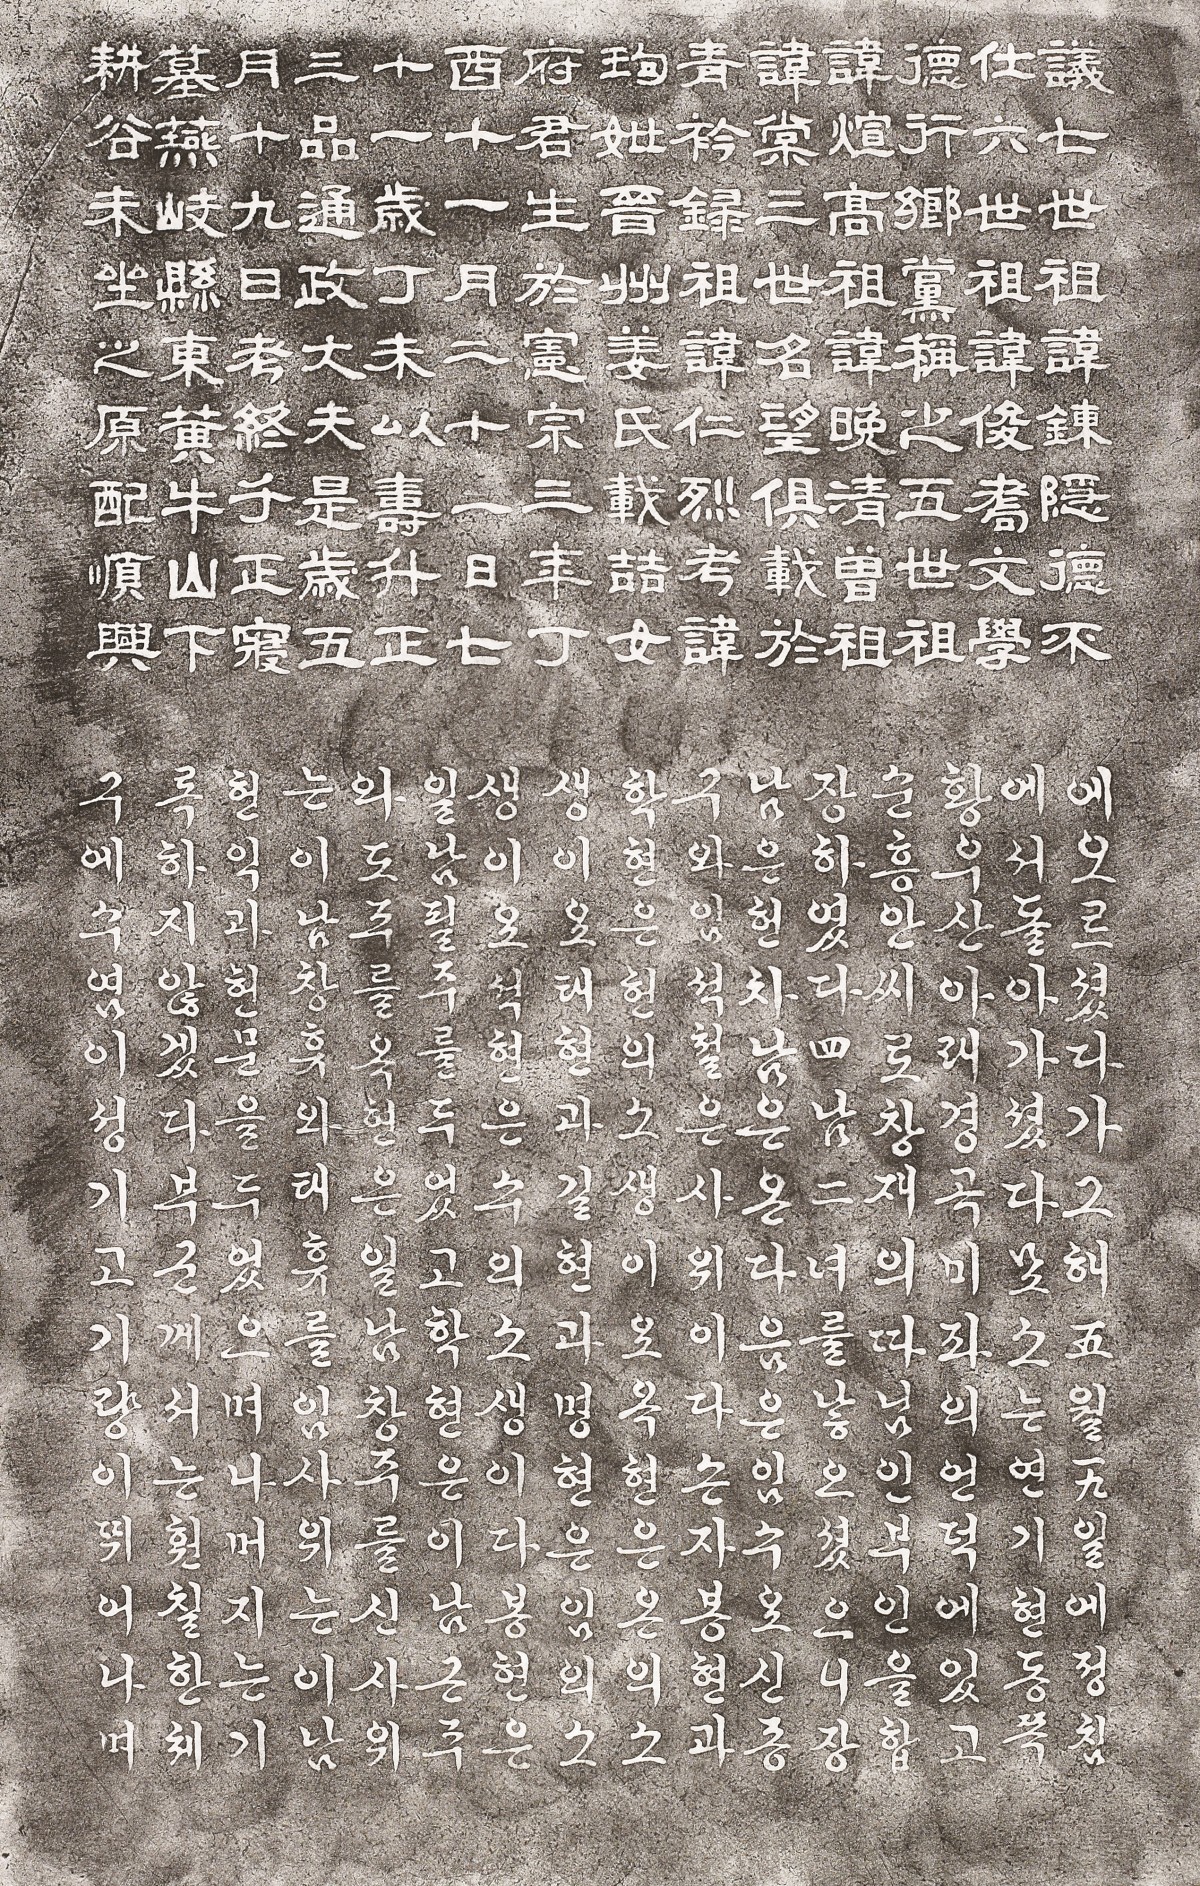 議七世祖諱鍊隱德不
仕六世祖諱俊文學
德行鄉黨稱之五世祖
諱煊高祖諱晚清曾祖
諱棠三世名望俱載於
青衿録祖諱仁烈考諱
珣妣晉州姜氏載喆女
府君生於憲宗三年丁
酉十一月二十一日七
十一歲丁未以壽升正
三品通政大夫是歲五
月十九日考終于正寢
墓燕岐縣東黃牛山下
耕谷未坐之原配順興
에오르셨다가그해五월一九일에정침
에서돌아가셨다묘소는연기현동쪽
황우산아래경곡미좌의언덕에있고
순흥안씨로창재의따님인부인을합
장하였다四남二녀를낳으셨으니장
남은헌차남은온다음은임수요신종
구와임석철은사위이다손자봉현과
학현은헌의소생이요옥현은온의소
생이요태현과길현과명현은임의소
생이요석현은수의소생이다봉현은
일남필주를두었고학현은이남근주
와도주를옥현은일남창주를신사위
는이남창휴와태휴를임사위는이남
현익과현문을두었으며나머지는기
록하지않겠다부군께서는훤칠한체
구에수염이성기고기량이뛰어나며